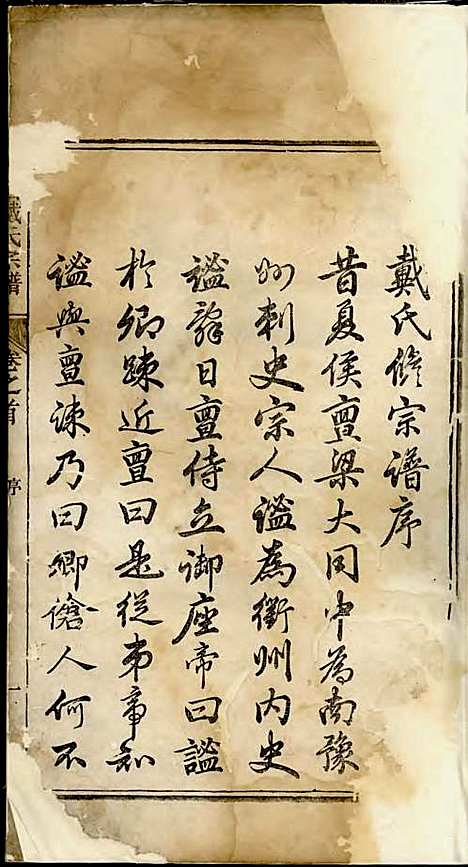 戴氏修宗譜序
昔夏侯亶梁大同中為南豫
州刺史宗人謐為衡州内史
謐辭日亶侍立御座帝曰謐
於卿踈近亶曰是従弟帝知
謐與亶踈乃曰卿傖人何不
戴氏宗譜 卷之首 序 一